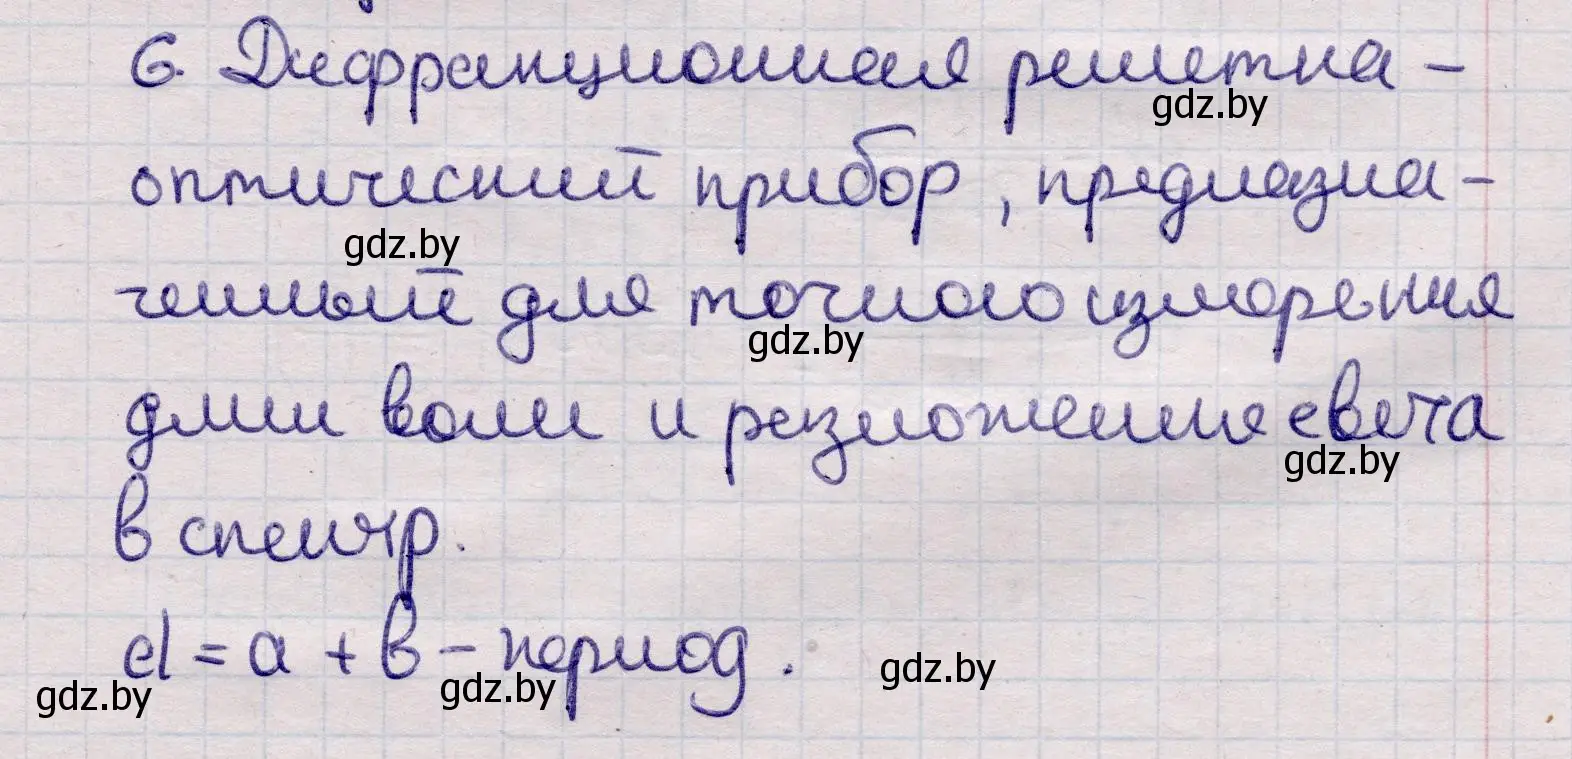 6. Дифракционная решетка -
gdz.by
оптический прибор, предназна-
gdz.by
ченный для точного измерения
gdz.by
длин волн и разложение света
gdz.by
в спектр.
d = a + b - период.
gdz.by
gdz.by
gdz.by